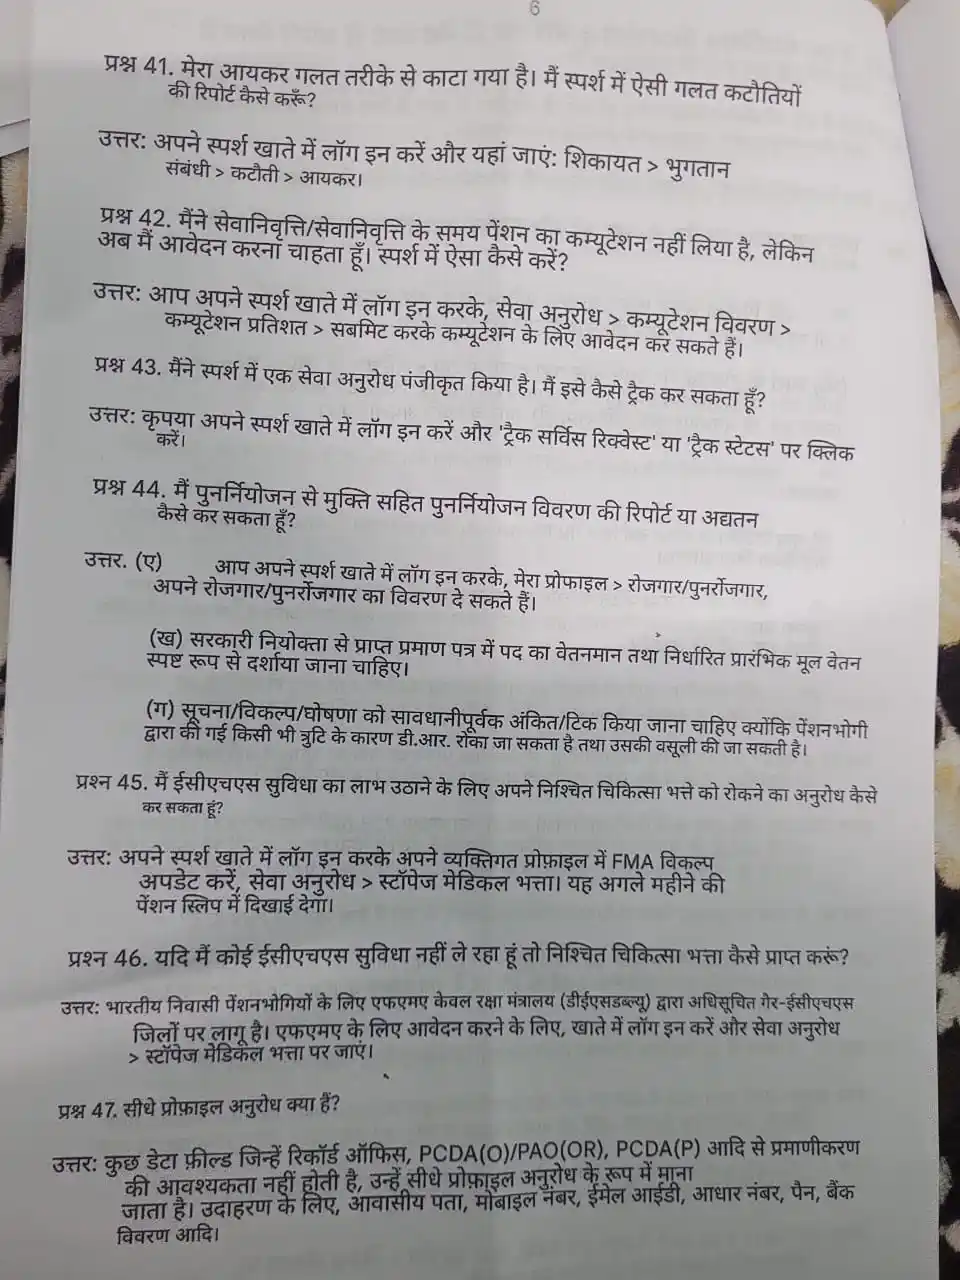 6
प्रश्न 41. मेरा आयकर गलत तरीके से काटा गया है। मैं स्पर्श में ऐसी गलत कटौतियों
की रिपोर्ट कैसे करूँ?
उत्तर: अपने स्पर्श खाते में लॉग इन करें और यहां जाएं: शिकायत > भुगतान
संबंधी > कटौती > आयकर।
प्रश्न 42. मैंने सेवानिवृत्ति/सेवानिवृत्ति के समय पेंशन का कम्यूटेशन नहीं लिया है, लेकिन
अब मैं आवेदन करना चाहता हूँ। स्पर्श में ऐसा कैसे करें?
उत्तर: आप अपने स्पर्श खाते में लॉग इन करके, सेवा अनुरोध > कम्यूटेशन विवरण >
कम्यूटेशन प्रतिशत > सबमिट करके कम्यूटेशन के लिए आवेदन कर सकते हैं।
प्रश्न 43. मैंने स्पर्श में एक सेवा अनुरोध पंजीकृत किया है। मैं इसे कैसे ट्रैक कर सकता हूँ?
उत्तर: कृपया अपने स्पर्श खाते में लॉग इन करें और 'ट्रैक सर्विस रिक्वेस्ट' या 'ट्रैक स्टेटस' पर क्लिक
करें।
प्रश्न 44. मैं पुनर्नियोजन से मुक्ति सहित पुनर्नियोजन विवरण की रिपोर्ट या अद्यतन
कैसे कर सकता हूँ?
उत्तर. (ए) आप अपने स्पर्श खाते में लॉग इन करके, मेरा प्रोफाइल > रोजगार/पुनर्रोजगार,
अपने रोजगार/पुनर्रोजगार का विवरण दे सकते हैं।
(ख) सरकारी नियोक्ता से प्राप्त प्रमाण पत्र में पद का वेतनमान तथा निर्धारित प्रारंभिक मूल वेतन
स्पष्ट रूप से दर्शाया जाना चाहिए।
(ग) सूचना/विकल्प/घोषणा को सावधानीपूर्वक अंकित/टिक किया जाना चाहिए क्योंकि पेंशनभोगी
द्वारा की गई किसी भी त्रुटि के कारण डी.आर. रोका जा सकता है तथा उसकी वसूली की जा सकती है।
प्रश्न 45. मैं ईसीएचएस सुविधा का लाभ उठाने के लिए अपने निश्चित चिकित्सा भत्ते को रोकने का अनुरोध कैसे
कर सकता हूं?
उत्तर: अपने स्पर्श खाते में लॉग इन करके अपने व्यक्तिगत प्रोफ़ाइल में FMA विकल्प
अपडेट करें, सेवा अनुरोध > स्टॉपेज मेडिकल भत्ता। यह अगले महीने की
पेंशन स्लिप में दिखाई देगा।
प्रश्न 46. यदि मैं कोई ईसीएचएस सुविधा नहीं ले रहा हूं तो निश्चित चिकित्सा भत्ता कैसे प्राप्त करूं?
उत्तर: भारतीय निवासी पेंशनभोगियों के लिए एफएमए केवल रक्षा मंत्रालय (डीईएसडब्ल्यू) द्वारा अधिसूचित गैर-ईसीएचएस
जिलों पर लागू है। एफएमए के लिए आवेदन करने के लिए, खाते में लॉग इन करें और सेवा अनुरोध
> स्टॉपेज मेडिकल भत्ता पर जाएं।
प्रश्न 47. सीधे प्रोफ़ाइल अनुरोध क्या हैं?
उत्तर: कुछ डेटा फ़ील्ड जिन्हें रिकॉर्ड ऑफिस, PCDA(O)/PAO(OR), PCDA(P) आदि से प्रमाणीकरण
की आवश्यकता नहीं होती है, उन्हें सीधे प्रोफ़ाइल अनुरोध के रूप में माना
जाता है। उदाहरण के लिए, आवासीय पता, मोबाइल नंबर, ईमेल आईडी, आधार नंबर, पैन, बैंक
विवरण आदि।